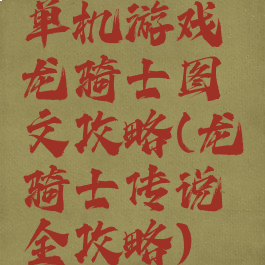 单机游戏
龙骑士图
文攻略(龙
骑士传说
全攻略)